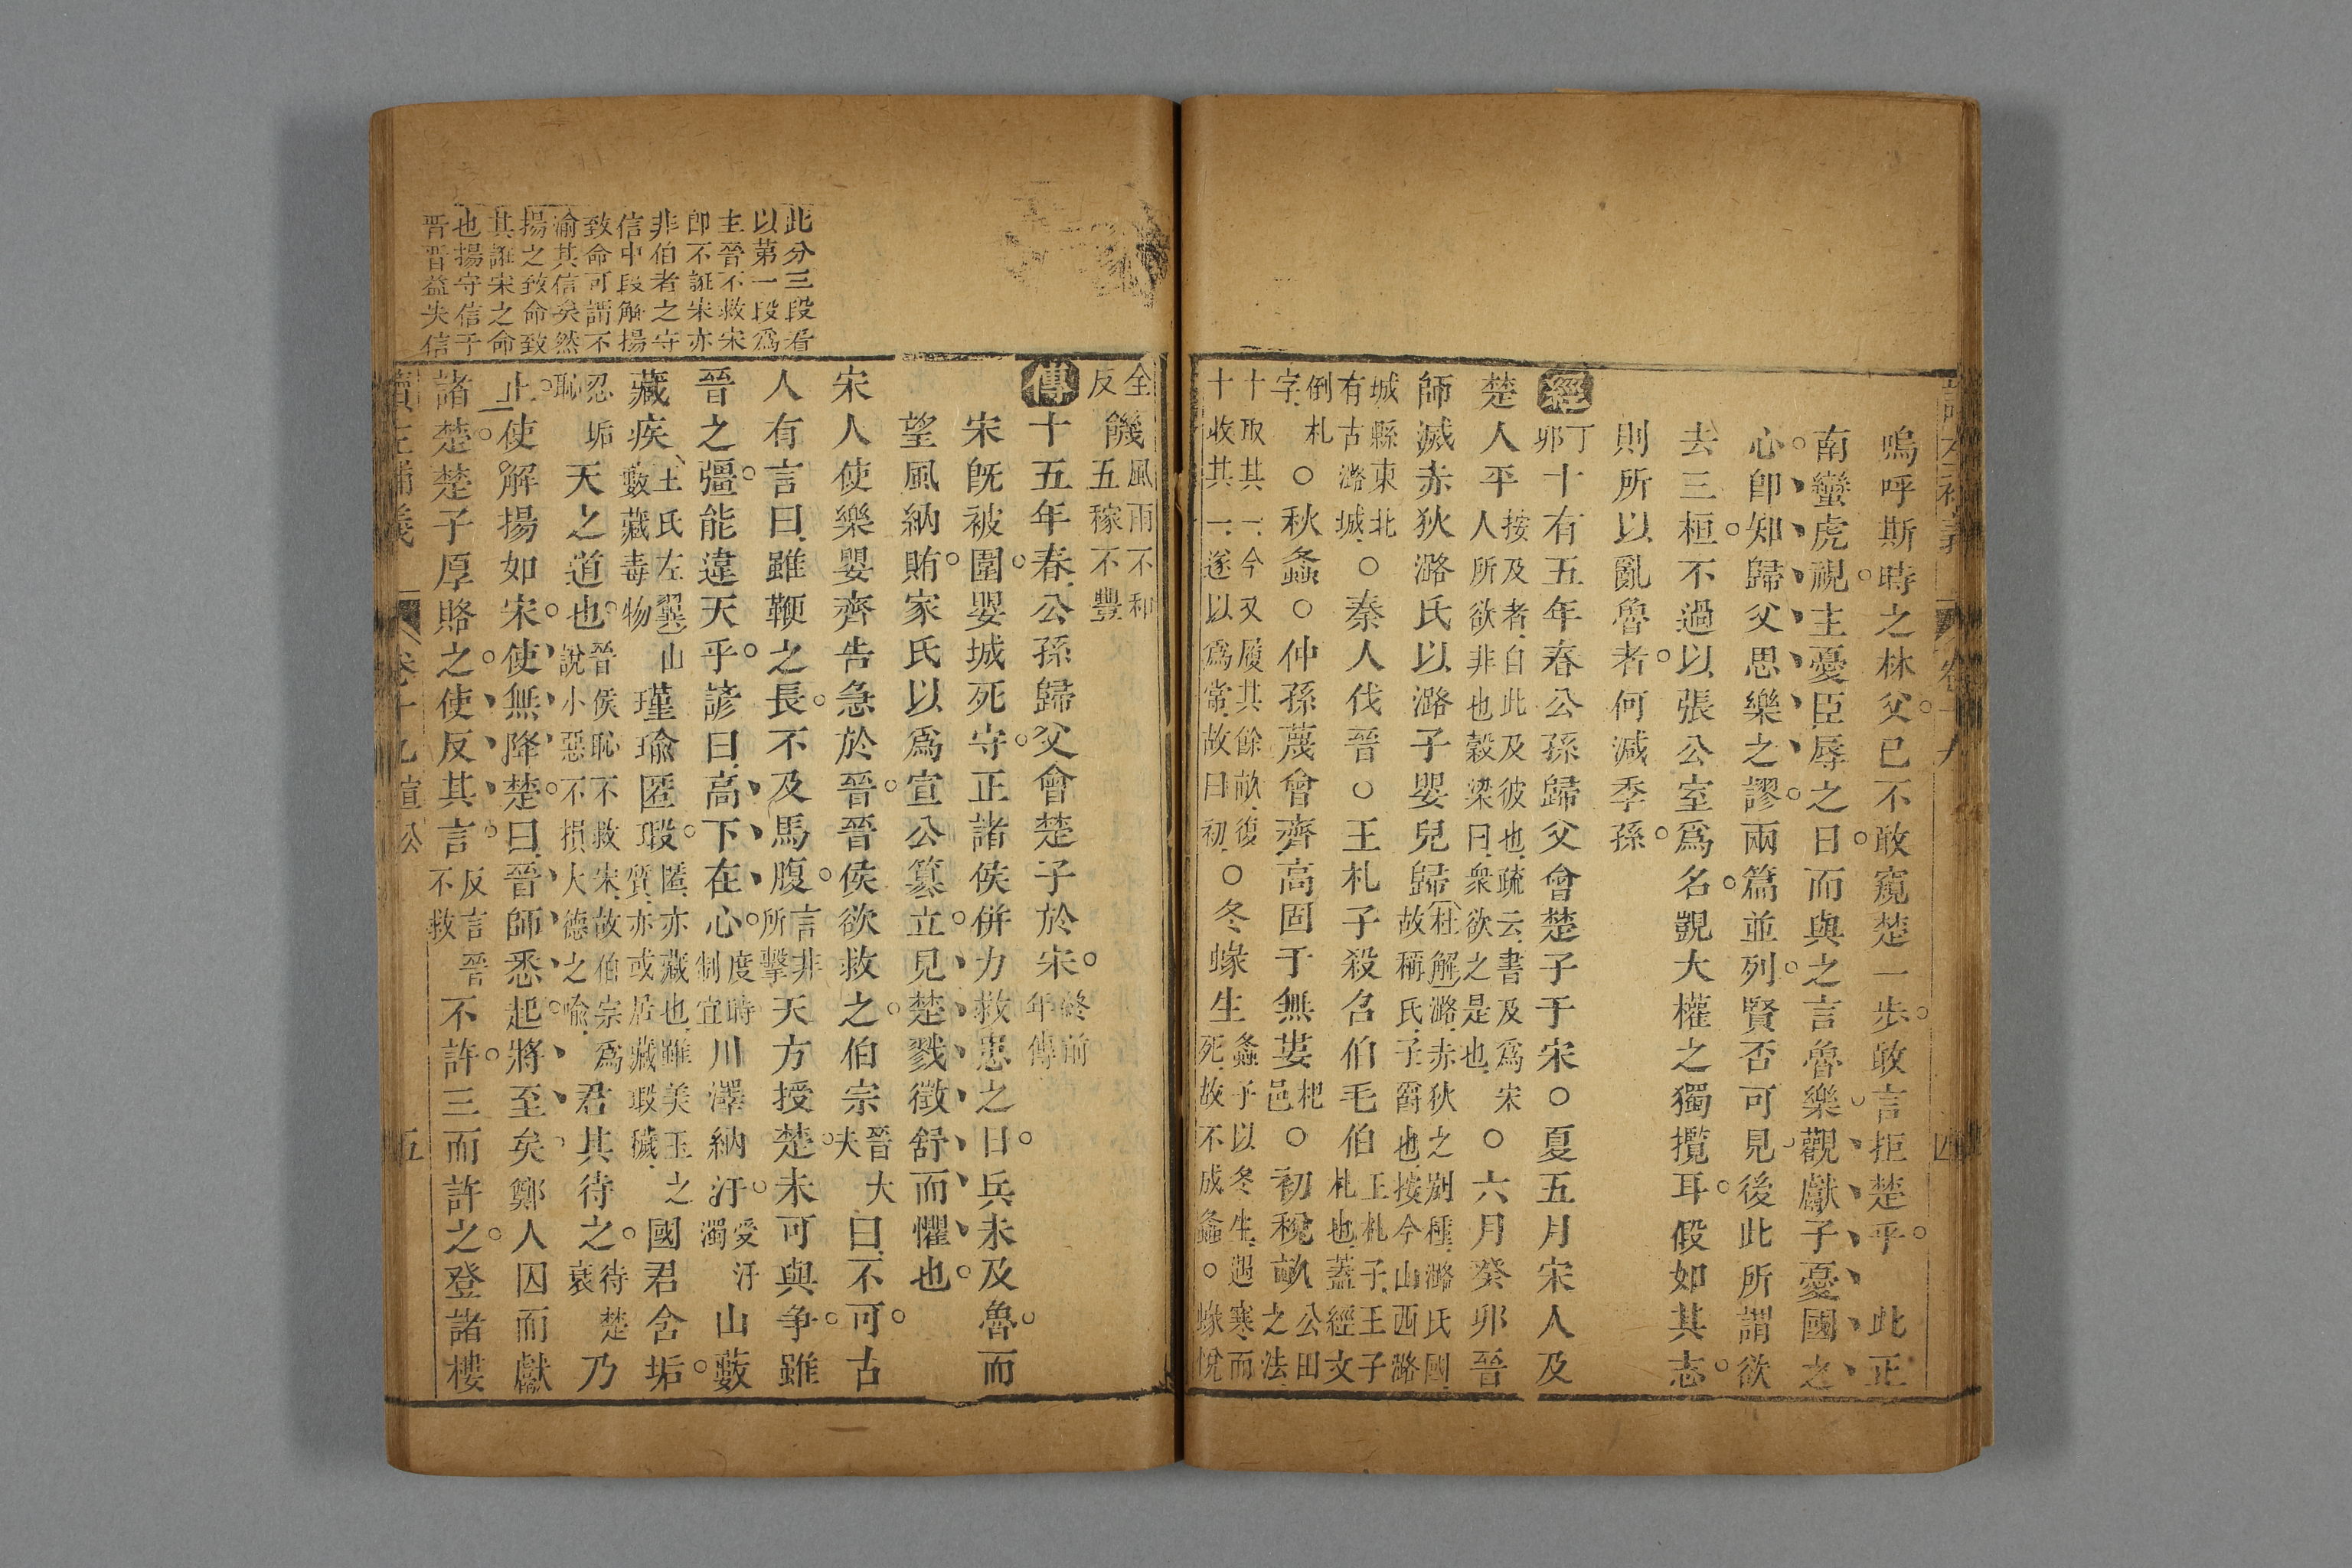 讀左補義 卷十九 四
嗚呼斯時之林父已不敢窺楚一步敢言拒楚乎 此正
南蠻虎視主憂臣辱之日而與之言魯樂觀獻子憂國之
心卽知歸父思樂之謬兩篇並列賢否可見後此所謂欲
去三桓不過以張公室爲名覬大權之獨攬耳假如其志
則所以亂魯者何減季孫
經丁卯十有五年春公孫歸父會楚子于宋○夏五月宋人及
楚人平按及者自此及彼也疏云書及爲宋人所欲非也穀梁曰衆欲之是也○六月癸卯晉
師滅赤狄潞氏以潞子嬰兒歸杜解潞赤狄之別種潞氏國故稱氏子爵也按今山西潞
城縣東北有古潞城○秦人伐晉○王札子殺召伯毛伯王札子王子札也蓋經文
倒札字○秋螽○仲孫蔑會齊高固于無婁杞邑○初稅畝公田之法
十取其一今又履其餘畝復十收其一遂以爲常故曰初○冬蝝生螽子以冬生遇寒而死故不成螽○蝝悅
全反饑風雨不和五稼不豐
傳十五年春公孫歸父會楚子於宋終前年傳
宋旣被圍嬰城死守正諸侯併力救患之日兵未及魯而
望風納賄家氏以爲宣公簒立見楚戮徵舒而懼也
宋人使樂嬰齊告急於晉晉侯欲救之伯宗晉大夫曰不可古
人有言曰雖鞭之長不及馬腹言非所擊天方授楚未可與爭雖
晉之彊能違天乎諺曰高下在心度時制宜川澤納汙受汙濁山藪
藏疾王氏左翼山藪藏毒物瑾瑜匿瑕匿亦藏也雖美玉之質亦或居藏瑕穢國君含垢
忍垢恥天之道也晉侯恥不救宋故伯宗爲說小惡不損大德之喻君其待之待楚衰乃
止使解揚如宋使無降楚曰晉師悉起將至矣鄭人囚而獻
諸楚楚子厚賂之使反其言反言晉不救不許三而許之登諸樓
讀左補義 卷十九 宣公 五
此分三段看
以第一段爲
主晉不救宋
卽不誑宋亦
非伯者之守
信中段解揚
致命可謂不
渝其信矣然
揚之致命致
其誑宋之命
也揚守信于
晉晉益失信